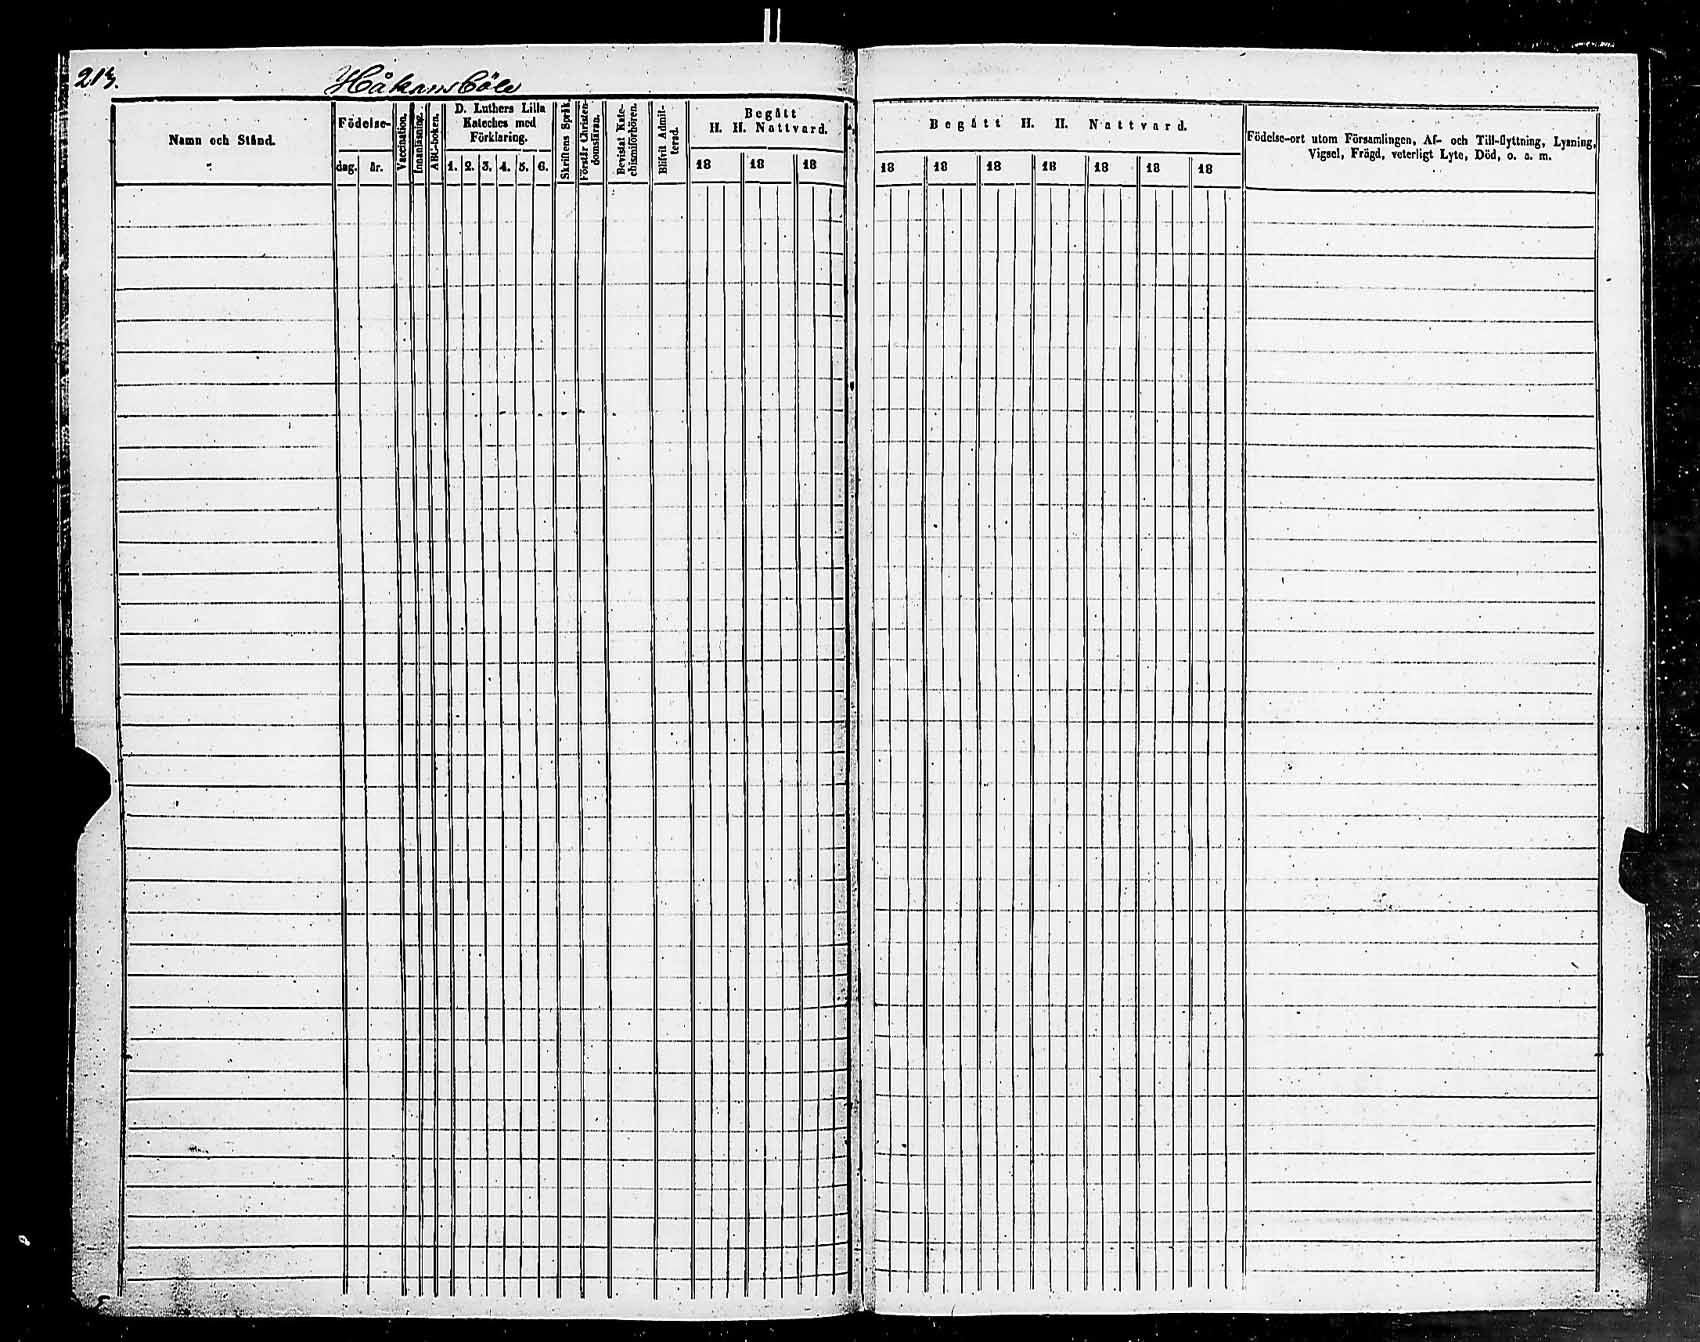 213.
Håkansböle
Namn och Stånd.
Födelse-
dag. år.
Vaccination.
Innanläsning.
ABC-boken.
D. Luthers Lilla
Kateches med
Förklaring.
1. 2. 3. 4. 5. 6.
Skriftens Språk.
Förstår Christen-
domsläran.
Bevistat Kate-
chismiförhören.
Blifvit Admit-
terad.
Begått
H. H. Nattvard.
18 18 18
Begått H. H. Nattvard.
18 18 18 18 18 18 18
Födelse-ort utom Församlingen, Af- och Till-flyttning, Lysning,
Vigsel, Frägd, veterligt Lyte, Död, o. s. m.